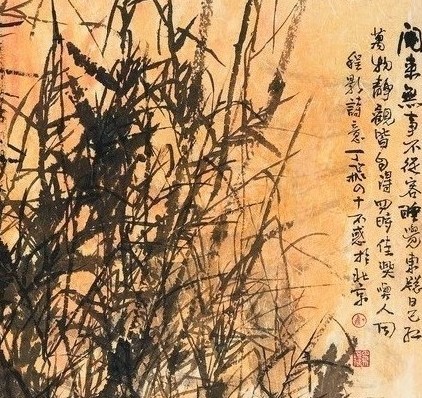 閑來無事不從容睡覺東窗日已红
萬物靜觀皆自得四時佳興與人同
程顥詩意丁四十不惑於北京